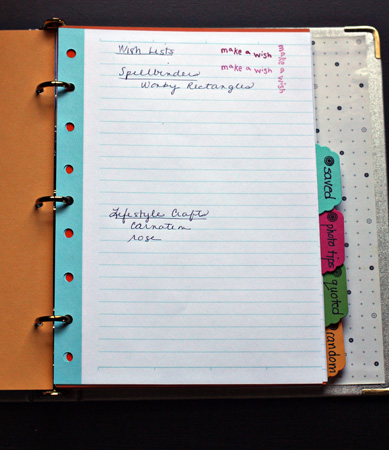 Wish Lists
make a wish
make a wish
make a wish
Spellbinders
Wonky Rectangles
Lifestyle Crafts
Carnation
rose
saved
photo tips
quoted
random